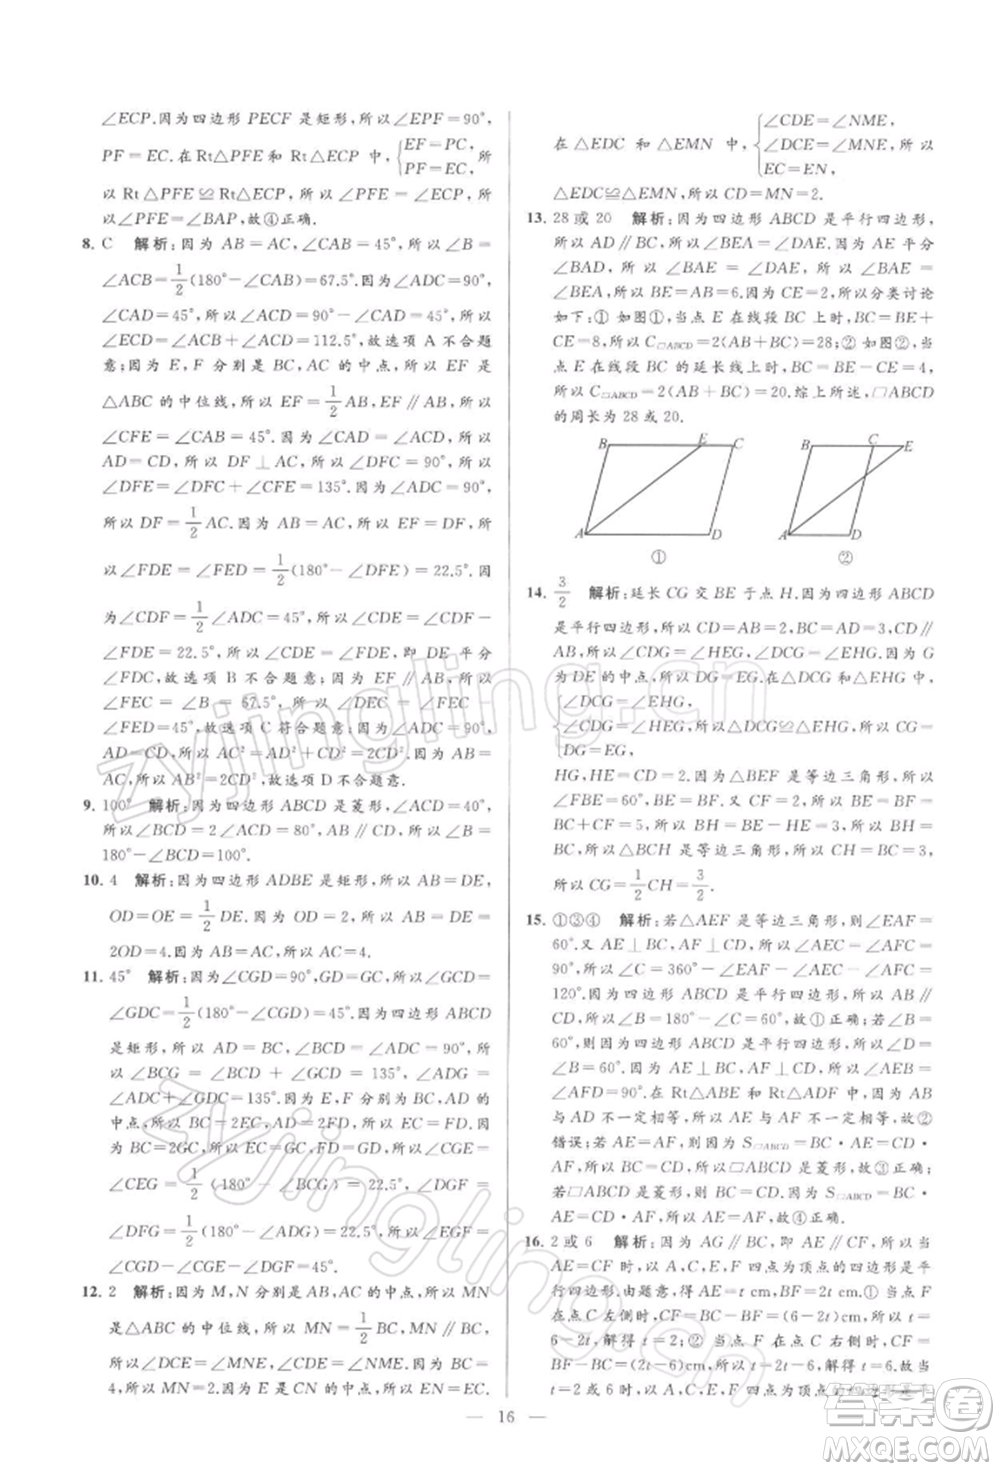 ∠ECP.因为四边形 PECF 是矩形,所以∠EPF=90°,
PF=EC.在 Rt△PFE 和 Rt△ECP 中,{EF=PC, PF=EC, 所
以 Rt△PFE≌Rt△ECP,所以∠PFE=∠ECP,所以
∠PFE=∠BAP,故④正确.
8. C 解析:因为 AB=AC,∠CAB=45°,所以∠B=
∠ACB=1/2(180°-∠CAB)=67.5°.因为∠ADC=90°,
∠CAD=45°,所以∠ACD=90°-∠CAD=45°,所以
∠BCD=∠ACB+∠ACD=112.5°,故选项 A 不合题
意;因为 E,F 分别是 BC,AC 的中点,所以 EF 是
△ABC 的中位线,所以 EF=1/2AB,EF∥AB,所以
∠CFE=∠CAB=45°.因为∠ACD=45°,所以
AD=CD.因为 F 是 AC 的中点,
所以 DF⊥AC,所以∠DFC=90°,所以
∠DFE=∠DFC+∠CFE=135°.因为∠ADC=90°,
所以 DF=1/2AC.因为 AB=AC,所以 EF=DF,所
以∠FDE=∠FED=1/2(180°-∠DFE)=22.5°.因
为∠FDC=1/2∠ADC=45°,所以∠CDE=∠FDC-
∠FDE=22.5°,所以∠CDE=∠FDE,即 DE 平分
∠FDC,故选项 B 不合题意;因为 EF∥AB,所以
∠FEC=∠B=67.5°,所以∠DEC=∠FEC-
∠FED=45°,故选项 C 符合题意;因为∠ADC=90°,
AD=CD,所以 AC²=AD²+CD²=2CD².因为 AB=
AC,所以 AB²=2CD²,故选项 D 不合题意.
9. 100° 解析:因为四边形 ABCD 是菱形,∠ACD=40°,
所以∠BCD=2∠ACD=80°,AB∥CD,所以∠B=
180°-∠BCD=100°.
10. 4 解析:因为四边形 ADBE 是矩形,所以 AB=DE,
OD=OE=1/2DE.因为 OD=2,所以 AB=DE=
2OD=4.因为 AB=AC,所以 AC=4.
11. 45° 解析:因为∠CGD=90°,GD=GC,所以∠GCD=
∠GDC=1/2(180°-∠CGD)=45°.因为四边形 ABCD
是矩形,所以 AD=BC,∠BCD=∠ADC=90°,所
以∠BCG=∠BCD+∠GCD=135°,∠ADG=
∠ADC+∠GDC=135°.因为 E,F 分别为 BC,AD 的中
点,所以 BC=2EC,AD=2FD,所以 EC=FD.因
为 BC=2GC,所以 EC=GC,FD=GD,所以∠CGE=
∠CEG=1/2(180°-∠BCG)=22.5°,∠DGF=
∠DFG=1/2(180°-∠ADG)=22.5°,所以∠EGF=
∠CGD-∠CGE-∠DGF=45°.
12. 2 解析:因为 M,N 分别是 AB,AC 的中点,所以 MN
是△ABC 的中位线,所以 MN=1/2BC,MN∥BC,
所以∠DCE=∠MNE,∠CDE=∠NME.因为 BC=
4,所以 MN=2.因为 E 是 CN 的中点,所以 EC=EN.
在△EDC 和△EMN 中,{∠CDE=∠NME, ∠DCE=∠MNE, 所以 EC=EN,
△EDC≌△EMN,所以 CD=MN=2.
13. 28 或 20 解析:因为四边形 ABCD 是平行四边形,
所以 AD∥BC,所以∠BEA=∠DAE.因为 AE 平分
∠BAD,所以∠BAE=∠DAE,所以∠BAE=
∠BEA,所以 BE=AB=6.因为 CE=2,所以分类讨论
如下:① 如图①,当点 E 在线段 BC 上时,BC=BE+
CE=8,所以 C▱ABCD=2(AB+BC)=28;② 如图②,当
点 E 在线段 BC 的延长线上时,BC=BE-CE=4,
所以 C▱ABCD=2(AB+BC)=20.综上所述,▱ABCD
的周长为 28 或 20.
B E C A D ①
B C E A D ②
14. 3/2 解析:延长 CG 交 BE 于点 H.因为四边形 ABCD
是平行四边形,所以 CD=AB=2,BC=AD=3,CD∥
AB,所以∠DCG=∠EHG,∠CDG=∠HEG.因为 G
为 DE 的中点,所以 DG=EG.在△DCG 和△EHG 中,
{∠DCG=∠EHG, ∠CDG=∠HEG, DG=EG, 所以△DCG≌△EHG,所以 CG=
HG,HE=CD=2.因为△BEF 是等边三角形,所以
∠FBE=60°,BE=BF.又因为 CF=2,所以 BF=BC+
CF=5,所以 BE=5,所以 BH=BE-HE=3,所以 BH=
BC,所以△BCH 是等边三角形,所以 CH=BC=3,
所以 CG=1/2CH=3/2.
15. ①③④ 解析:若△AEF 是等边三角形,所以∠EAF=
60°.又因为 AE⊥BC,AF⊥CD,所以∠AEC=∠AFC=
90°,所以∠C=360°-∠EAF-∠AEC-∠AFC=
120°.因为四边形 ABCD 是平行四边形,所以 AB∥
CD,所以∠B=180°-∠C=60°,故①正确;若∠B=
60°,则因为四边形 ABCD 是平行四边形,所以∠D=
∠B=60°.因为 AE⊥BC,AF⊥CD,所以∠AEB=
∠AFD=90°.在 Rt△ABE 和 Rt△ADF 中,因为 AB
与 AD 不一定相等,所以 AE 与 AF 不一定相等,故②
错误;若 AE=AF,则因为 S▱ABCD=BC·AE=
CD·AF,所以 BC=CD,所以▱ABCD 是菱形,故③正确;
若▱ABCD 是菱形,则 BC=CD.因为 S▱ABCD=BC·
AE=CD·AF,所以 AE=AF,故④正确.
16. 2 或 6 解析:因为 AG∥BC,即 AE∥CF,所以当
AE=CF 时,以 A,C,E,F 四点为顶点的四边形是平
行四边形.由题意,得 AE=t cm,BF=2t cm.① 当点 F
在点 C 左侧时,CF=BC-BF=(6-2t)cm,所以 t=
6-2t,解得 t=2;② 当点 F 在点 C 右侧时,CF=
BF-BC=(2t-6)cm,所以 t=2t-6,解得 t=6.故当
t=2 或 6 时,以 A,C,E,F 四点为顶点的四边形是平
— 16 —
zyjingling.cn
zyjingling.cn
答案圈
MXQE.COM